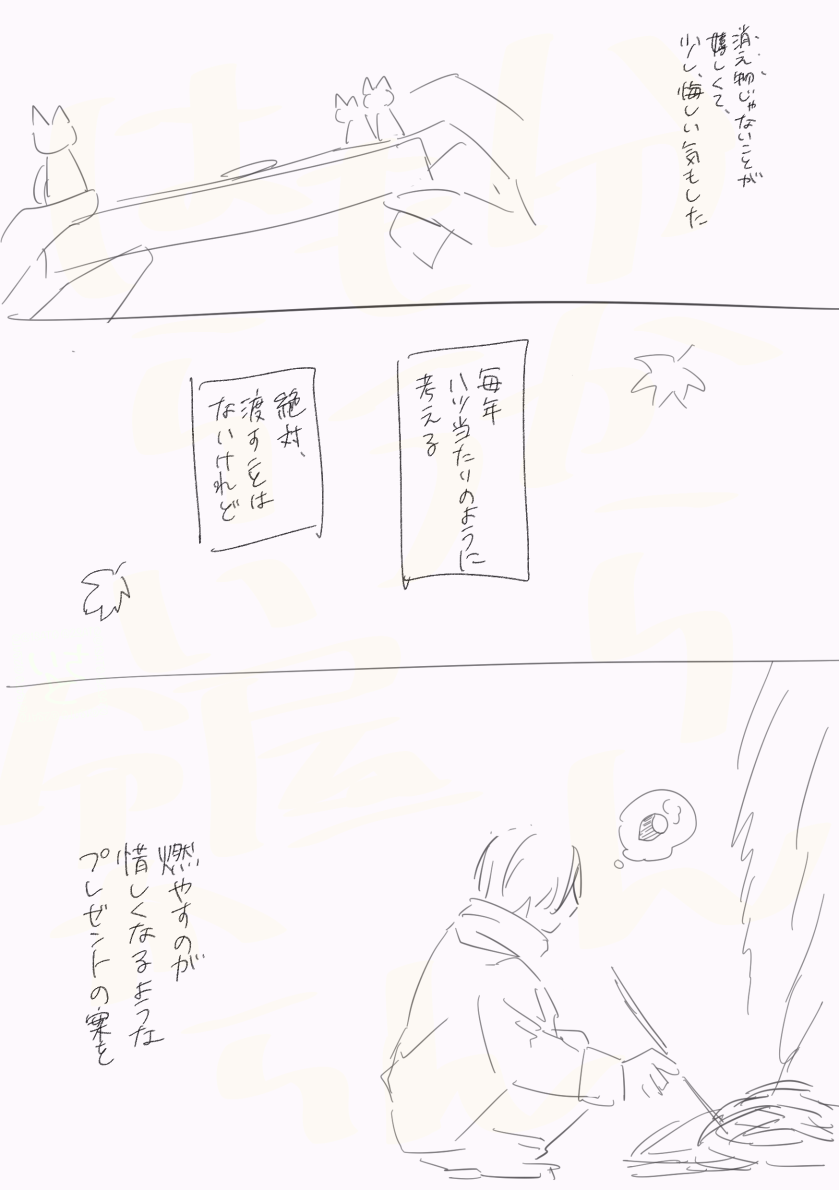 消え物じゃないことが
嬉しくて、
少し、悔しい気もした
毎年
八ツ当たりのように
考える
絶対、
渡すことは
ないけれど
燃やすのが
惜しくなるような
プレゼントの案を